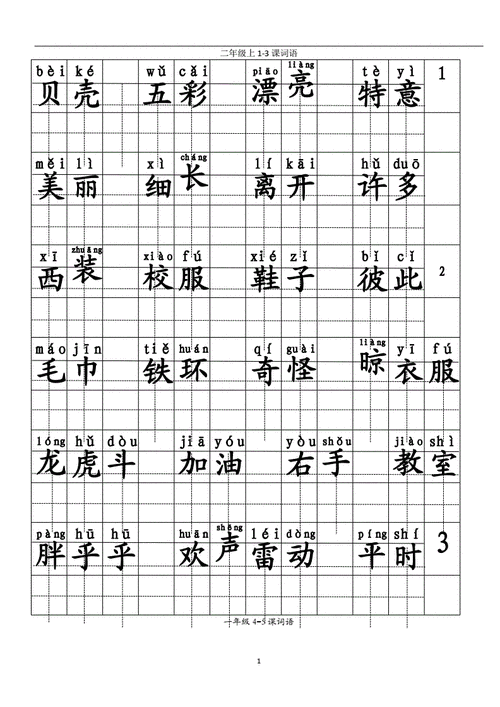 二年级上1-3课词语
bèi ké wǔ cǎi piāo liàng tè yì
贝壳 五彩 漂亮 特意 1
měi lì xì cháng lí kāi hǔ duō
美丽 细长 离开 许多
xī zhuāng xiào fú xié zǐ bǐ cǐ
西装 校服 鞋子 彼此 2
máo jīn tiě huán qí guài liàng yī fú
毛巾 铁环 奇怪 晾衣服
lóng hǔ dòu jiā yóu yòu shǒu jiào shì
龙虎斗 加油 右手 教室
pàng hū hū huān shēng léi dòng píng shí
胖乎乎 欢声雷动 平时 3
一年级4-5课词语
1